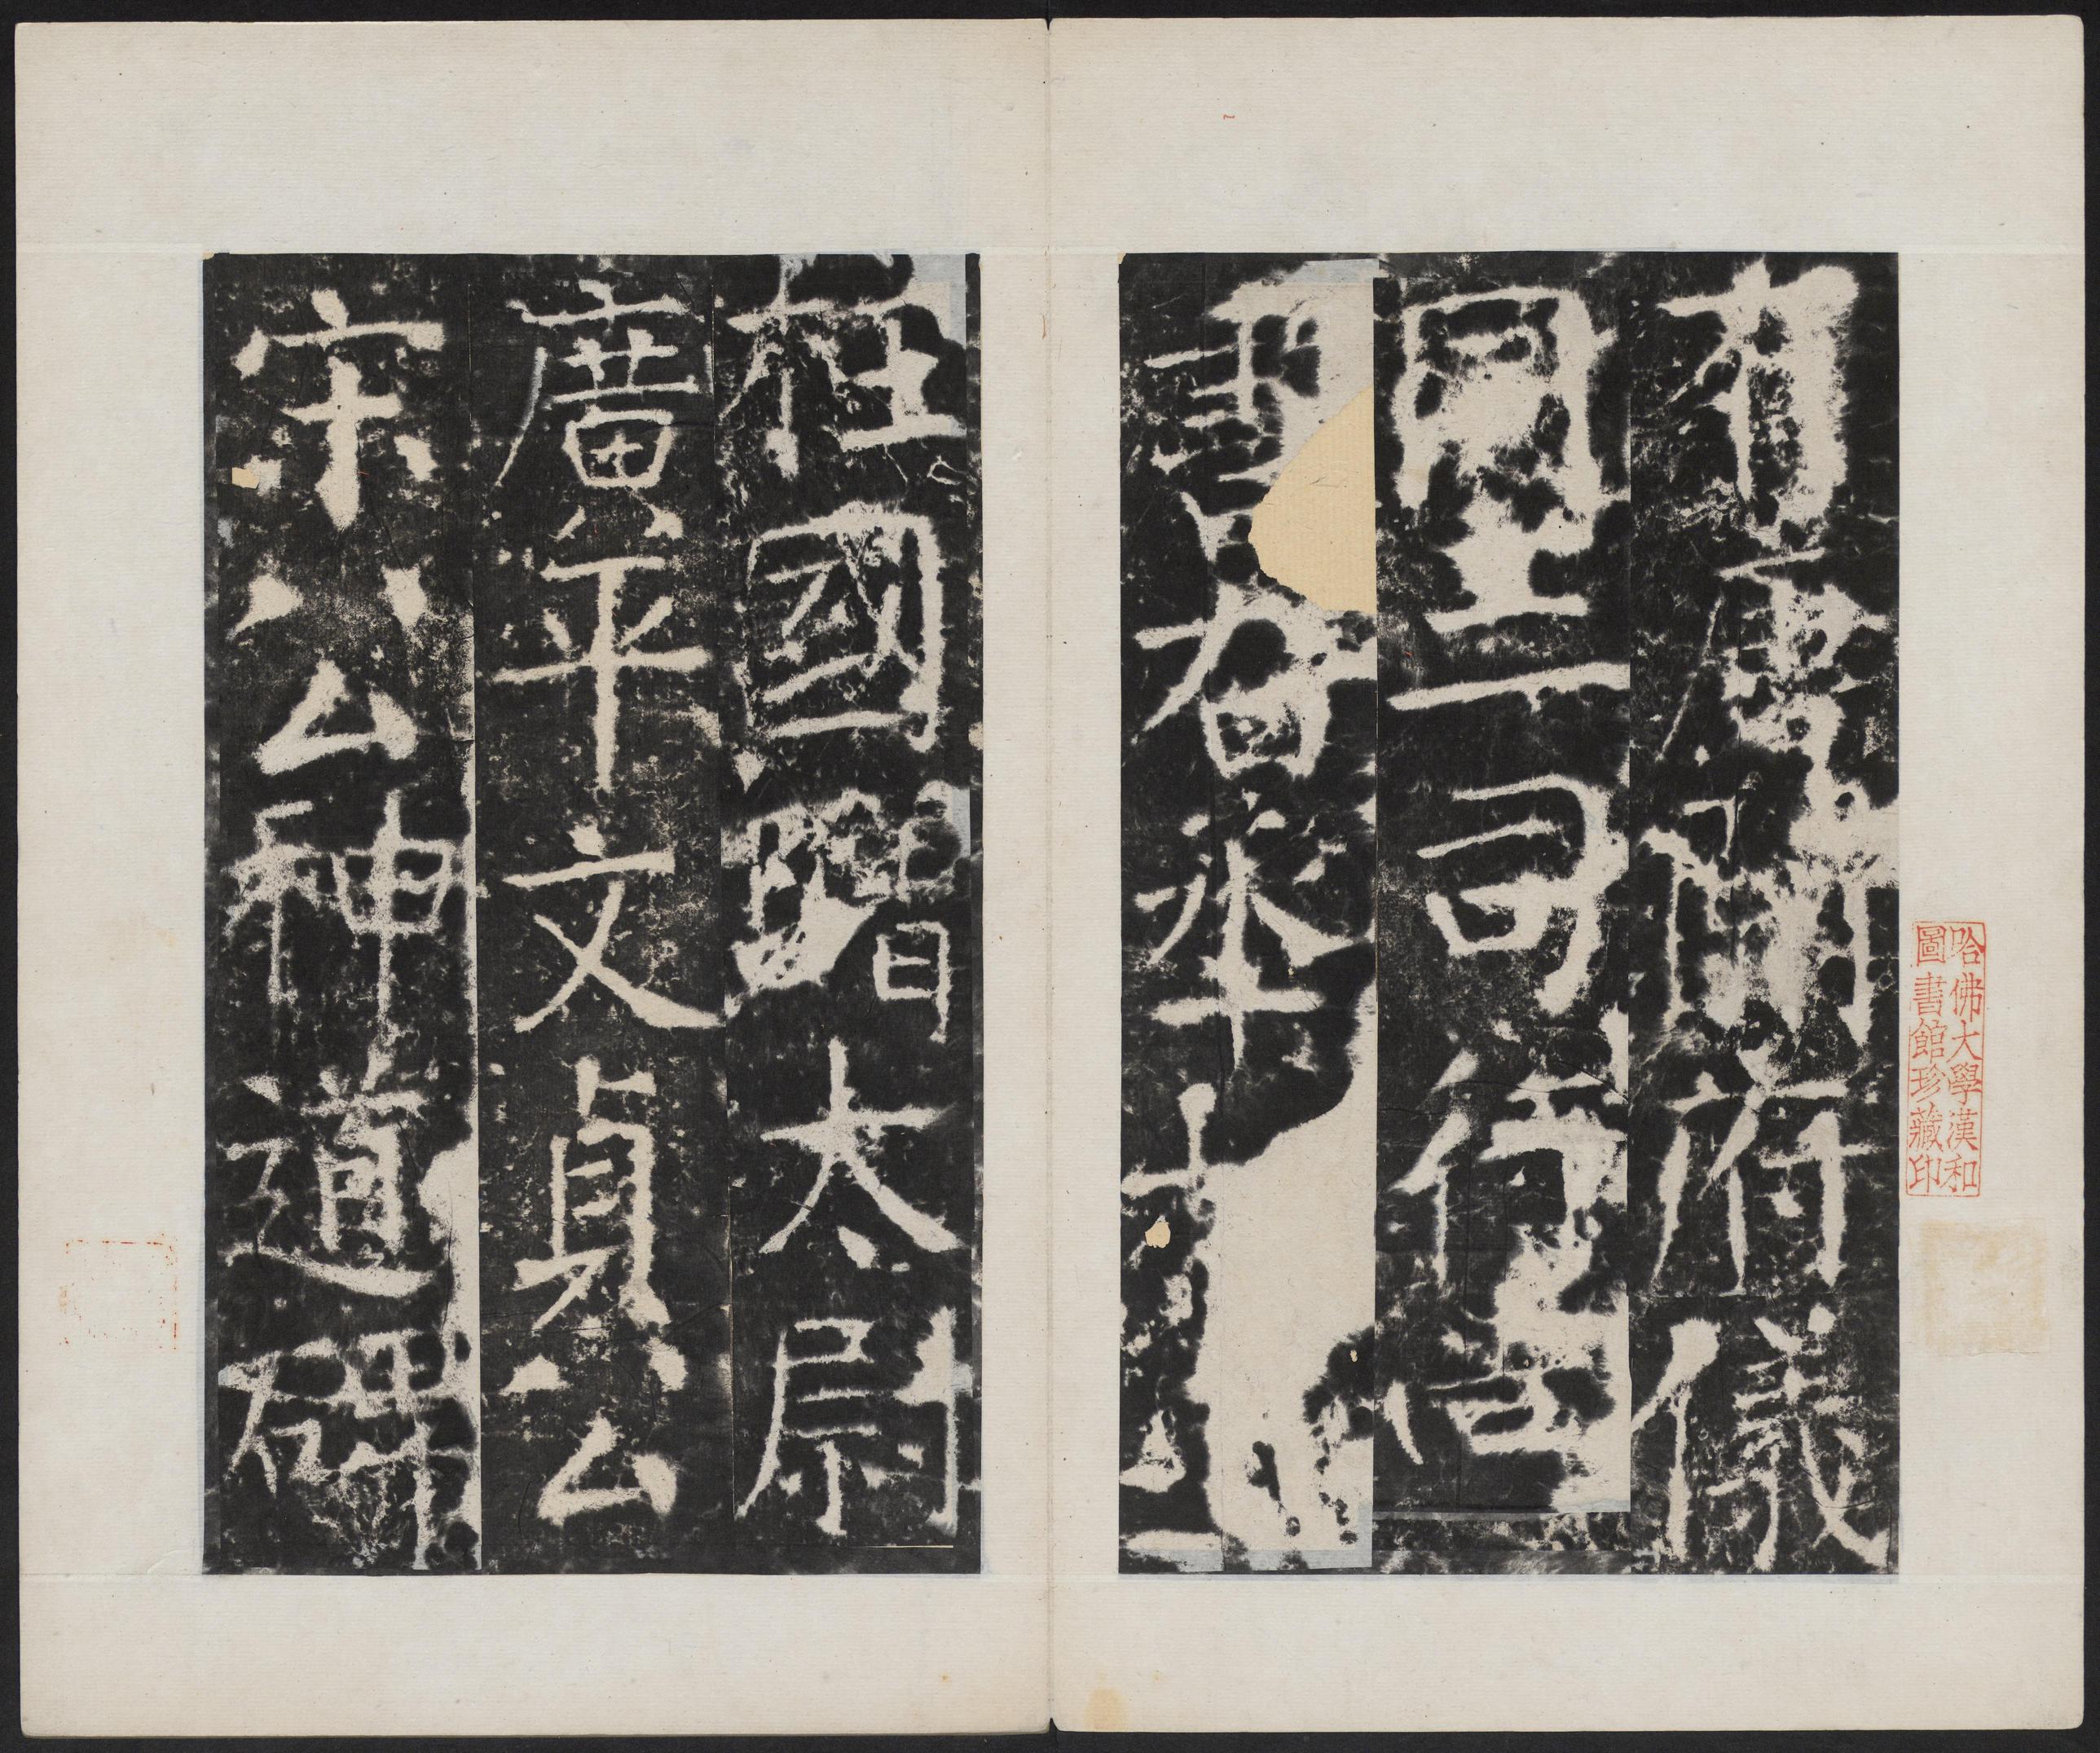 有唐開府儀
同三司行尚
書右丞相上
柱國贈太尉
廣平文貞公
宋公神道碑
哈佛大學漢和
圖書館珍藏印